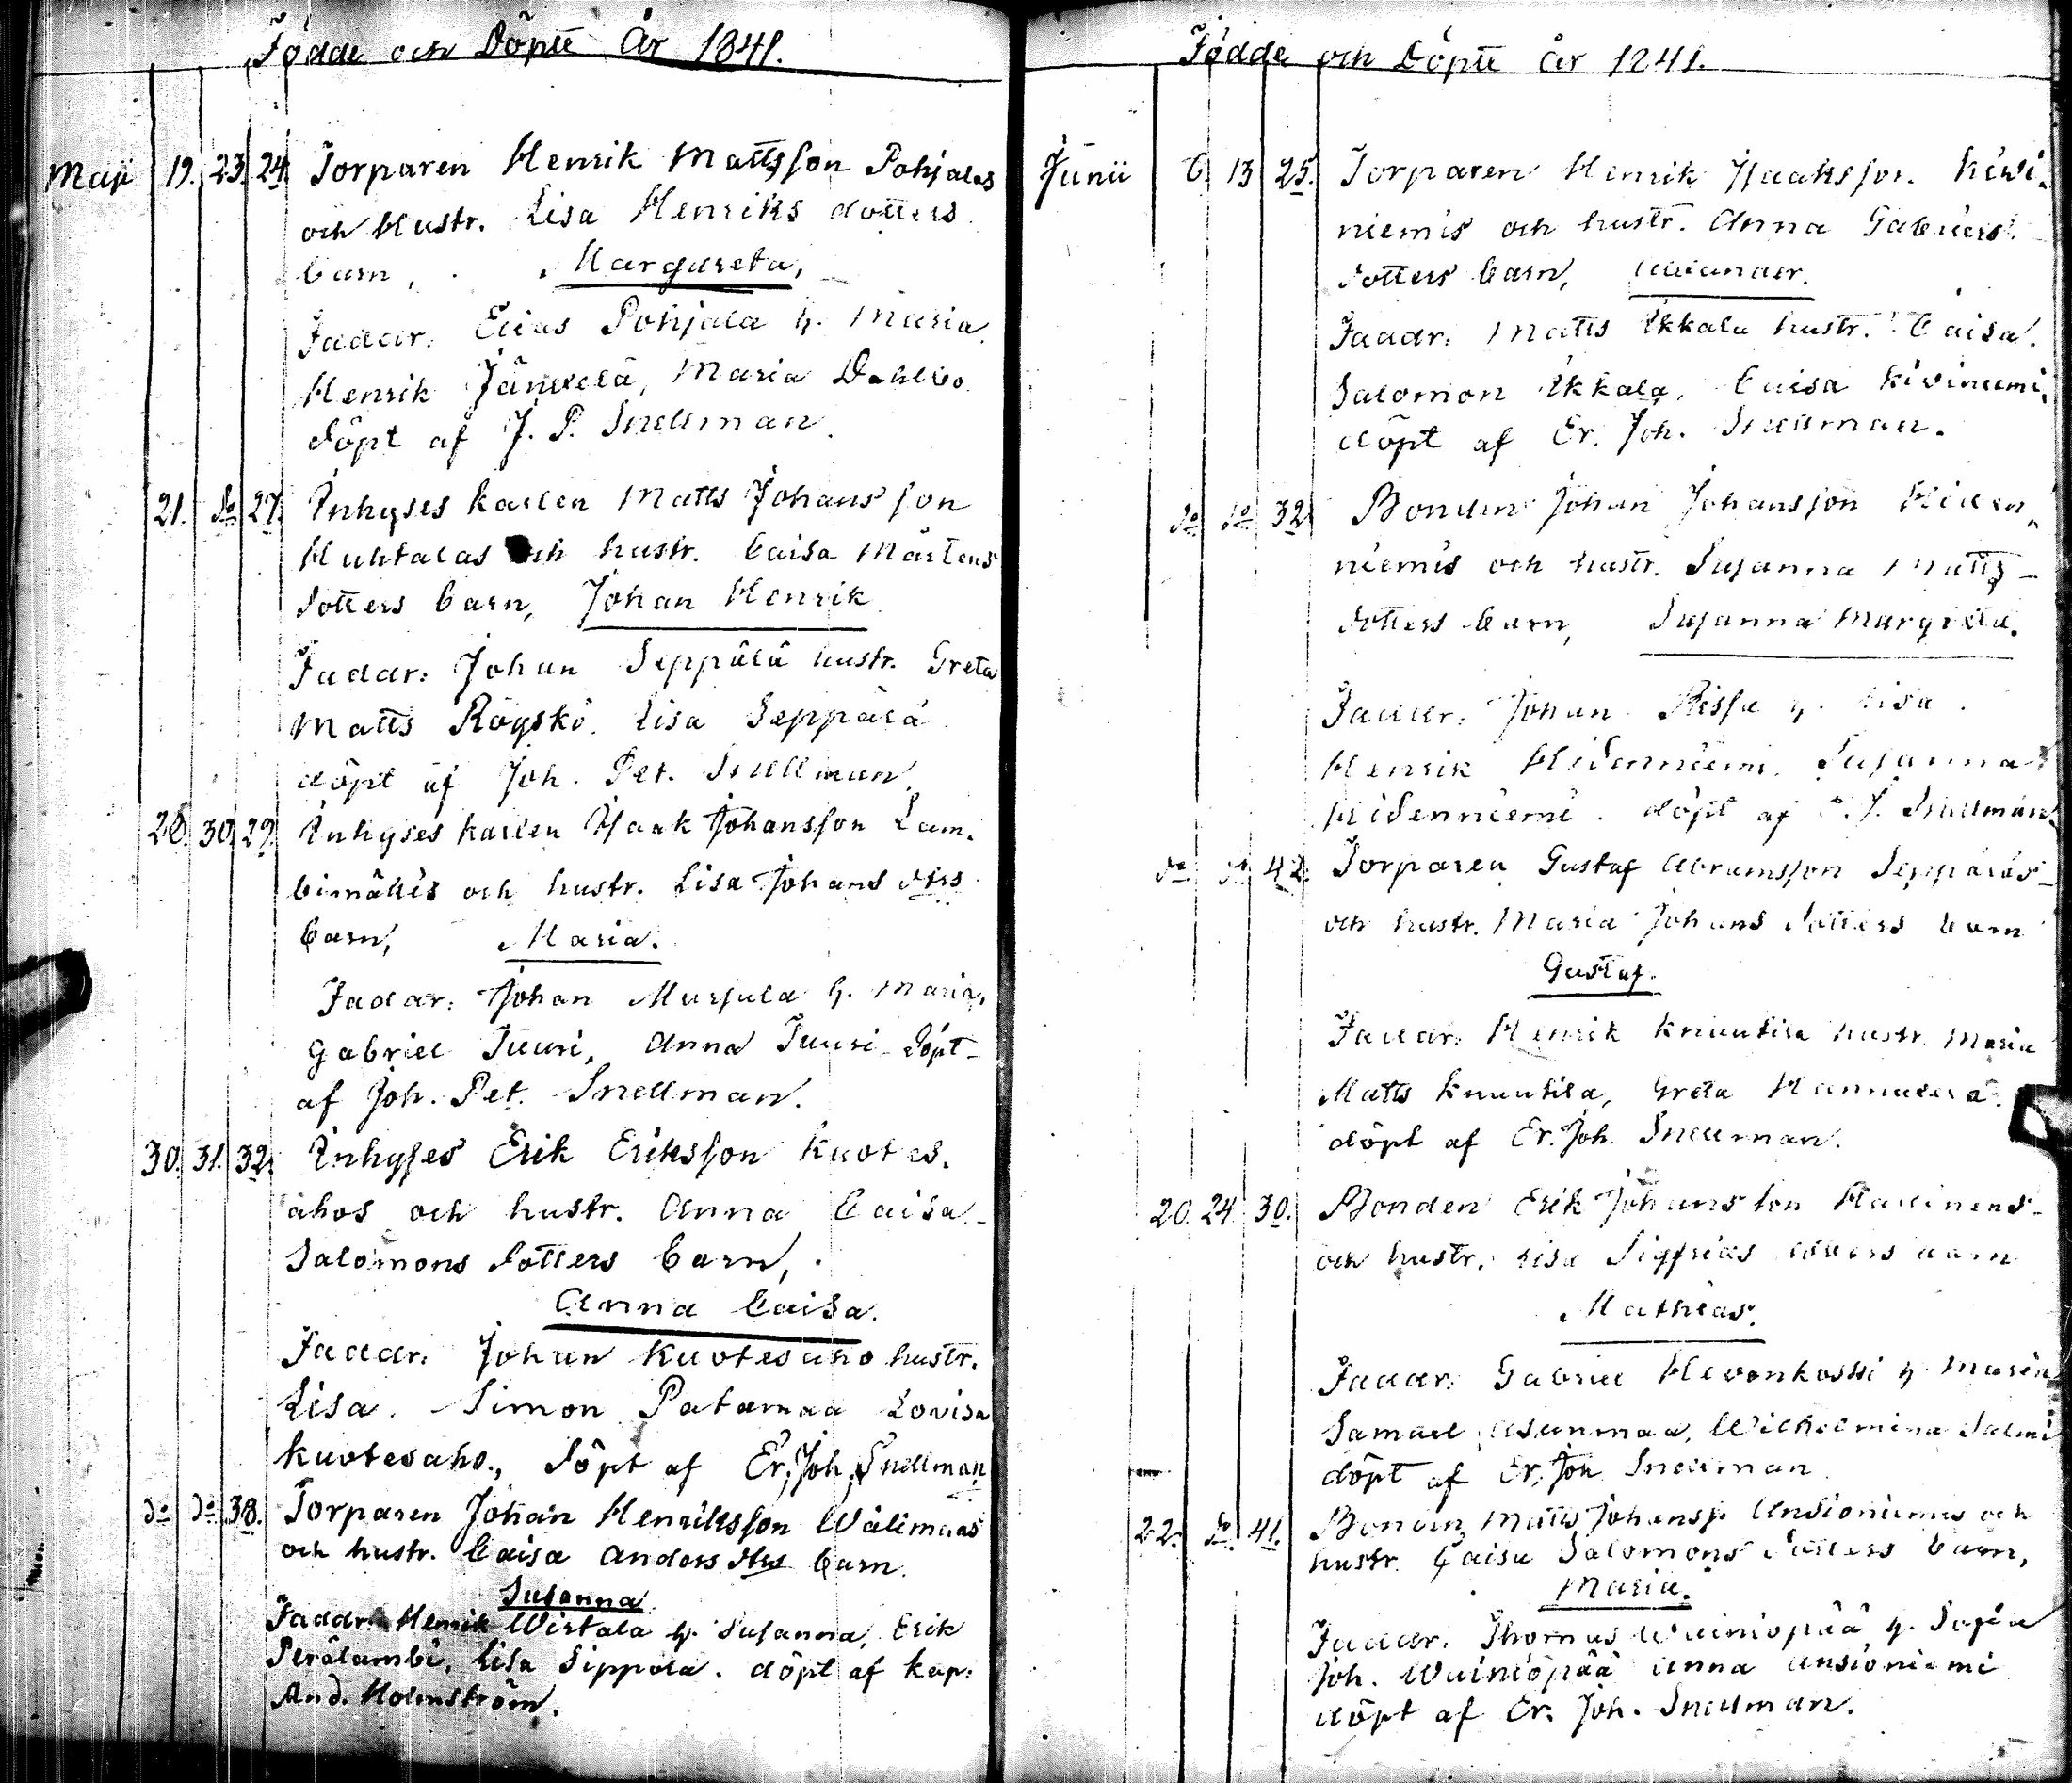 Födde och Döpte År 1841.
Maji 19. 23. 24. Torparen Henrik Mattsson Pohjalas
och Hustr. Lisa Henriks dotters
barn, Margareta,
Faddr: Elias Pohjala h. Maria
Henrik Jänkelä, Maria Dahlbo
döpt af J. P. Snellman.
21. do 27. Inhyses karlen Matts Johansson
Huhtalas och hustr. Caisa Mårtens
dotters barn, Johan Henrik
Faddr: Johan Seppälä hustr. Greta
Matts Röyskö. Lisa Seppälä
döpt af Joh. Pet. Snellman.
28. 30. 29. Inhyses karlen Isaak Johansson Lam-
bimäkis och hustr. Lisa Johans dtrs
barn, Maria.
Faddr: Johan Mursula h. Maria,
Gabriel Juusi, Anna Juusi döpt
af Joh. Pet. Snellman.
30. 31. 32. Inhyses Erik Eriksson Kuotes-
ahos och hustr. Anna Caisa
Salomons dotters barn,
Anna Caisa.
Faddr: Johan Kuotesaho hustr.
Lisa. Simon Patamaa Lovisa
Kuotesaho., döpt af Er. Joh. Snellman
do do 38. Torparen Johan Henriksson Wälimaas
och hustr. Caisa Anders dtrs barn.
Susanna
Faddr: Henrik Wirtala h. Susanna, Erik
Perälambi, Lisa Sippola. döpt af kap:
And. Holmström.
Födde och Döpte år 1841.
Junii 6. 13 25. Torparen Henrik Isaaksson Kiwi-
niemis och hustr. Anna Gabriels
dotters barn,
Faddr: Matts Ikkala hustr. Caisa.
Salomon Ikkala, Caisa Kiviniemi,
döpt af Er. Joh. Snellman.
do do 32 Bonden Johan Johansson Hiden-
niemis och hustr. Susanna Matts
dotters barn, Susanna Margreta.
Faddr: Johan h. Lisa.
Henrik Hidenniemi. Susanna
Hidenniemi. döpt af Snellman
do do 42. Torparen Gustaf Abramsson Seppäläs
och hustr. Maria Johans dotters barn
Gustaf.
Faddr: Henrik Knuutila hustr. Maria
Matts Knuutila, Greta Hannuksela.
döpt af Er. Joh. Snellman.
20. 24. 30. Bonden Erik Johansson
och hustr. Lisa Sigfrids dotters barn
Mathias.
Faddr: Gabriel Hevonkoski h. Maria
Samuel Asunmaa, Wilhelmina Salmi
döpt af Er. Joh Snellman
22. do 41. Bonden Matts Johanss. Ansioniemis och
hustr. Caisa Salomons dotters barn,
Maria.
Faddr: Thomas Wainiopää h. Sofia
Joh. Wainiopää Anna Ansioniemi
döpt af Er. Joh. Snellman.